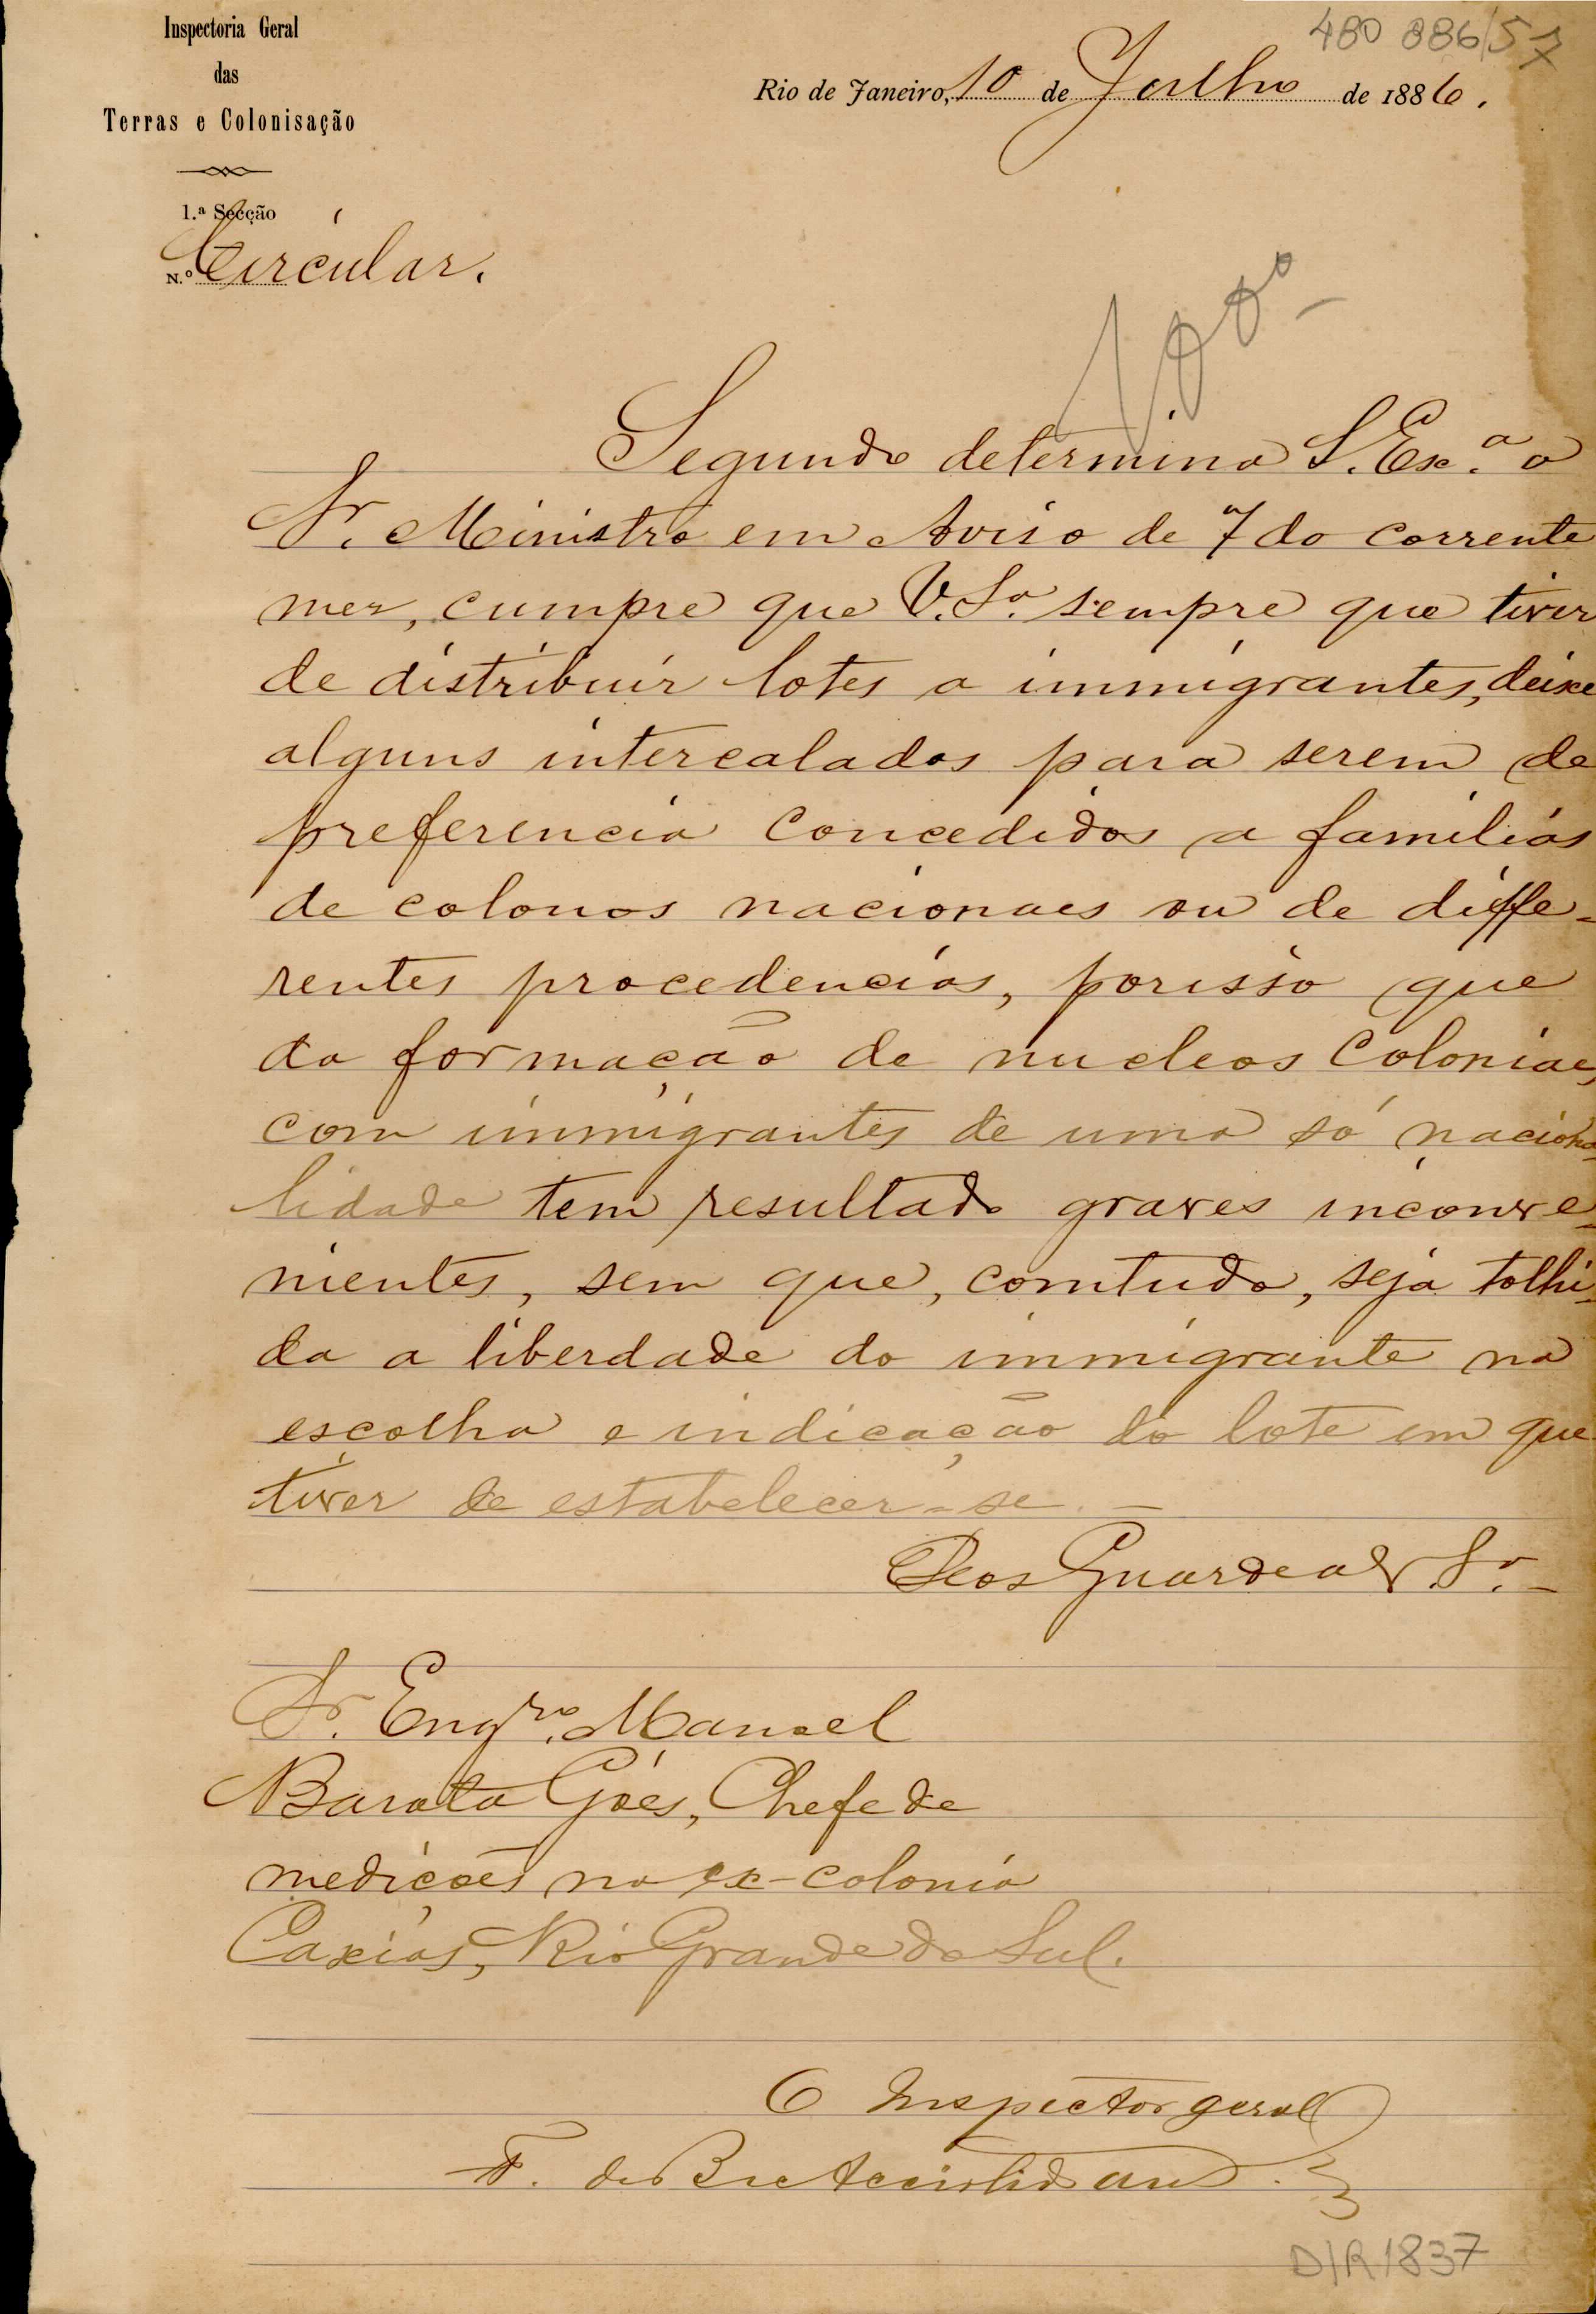 Inspectoria Geral
das
Terras e Colonisação
480 886/57
Rio de Janeiro, 10 de Julho de 1886.
1.ª Secção
N.º Circular.
Segundo determina S. Ex.ª o
Sr. Ministro em Aviso de 7 do corrente
mez, cumpre que V. Sª. sempre que tiver
de distribuir lotes a immigrantes, deixe
alguns intercalados para serem de
preferencia concedidos a familias
de colonos nacionaes ou de diffe-
rentes procedencias, porisso que
da formação de nucleos coloniaes
com immigrantes de uma só naciona-
lidade tem resultado graves inconve-
nientes, sem que, comtudo, seja tolhi-
da a liberdade do immigrante na
escolha e indicação do lote em que
tiver de estabelecer-se. —
Deos Guarde a V. Sª. —
Sr. Engro. Manoel
Barata Góes, Chefe de
medições na ex-colonia
Caxias, Rio Grande do Sul.
O Inspector geral
F. de B. e Accioli de
D/R 1837